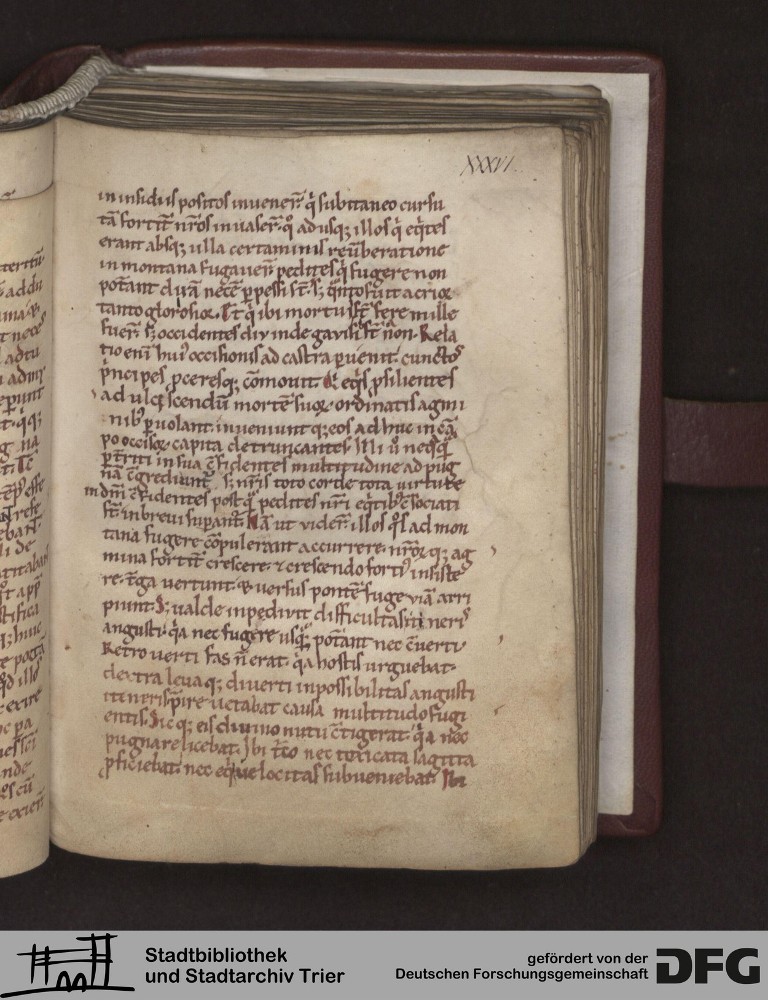 XXXVI
in insidiis positos invener̄. q̄ subitaneo cursu
tā fortit̄ nr̄os invaser̄. qͦ adusq; illos q̄ eq̄tes
erant absq; ulla certaminis reuerberatione
in montana fugaver̄. pedites q̄ fugere non
potant dirā necē ꝑpessi st̄.
tanto glorosiox. Et q̄ ibi mortui st̄ fere mille
fuer̄. s; occidentes diu inde gavisi st̄ non. Rela
tio eni hui' occisionis ad castra ꝑuenit. cunctos
p̄ncipes ꝓceresq; cōmovit. eq̄s ꝓsilientes
ad ulciscendū mortē suox. ordinatis agmi
nib' ꝑvolant. inveniunt q; eos adhuc in cā
po occisox capita detruncantes. Illi ū neq̄q̄
ꝑt̄riti in sua c̄fidentes multitudine ad pug
nā c̄grediunt̄. s; nr̄is toto corde tota virtute
in dn̄m c̄fidentes postq̄ pedites nr̄i eq̄tib' c̄sociati
st̄. in brevi suꝑant̄. Nā ut vider̄ illos qͦs ad mon
tana fugere cōpulerant accurrere. nr̄ox q; ag
mina fortit̄ crescere. & crescendo forti' insiste
re. t̄ga vertunt. & versus pontē fuge viā arri
piunt. S; valde inpedivit difficultas itineris
angusti. q̄a nec fugere usq̄; potant nec c̄verti
Retro verti fas n̄ erat. q̄a hostis urguebat.
dextra leva q; diverti inpossibilitas angusti
itineris ꝓire vetabat causa multitudo fugi
entis. Sic q; eis divino nutu c̄tigerat. q̄a nec
pugnare licebat. Ibi t̄co nec toxicata sagitta
ꝓficiebat. nec eq̄ velocitas subveniebat. Ibi
Stadtbibliothek
und Stadtarchiv Trier
gefördert von der
Deutschen Forschungsgemeinschaft
DFG